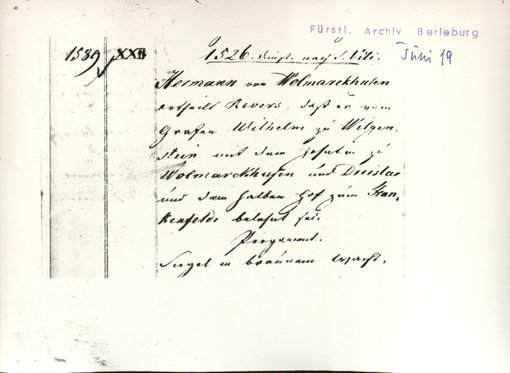 Fürstl. Archiv Berleburg
Juni 19
1589
XXB
1526. Dinst. nach S. Viti.
Hermann von Wolmarckhusen
ertheilt Revers, daß er vom
Grafen Wilhelm zu Witgen-
stein mit dem Zehnten zu
Wolmarckhusen und Dreislar
und dem halben Hof zum
kenfelde belehnt sei.
Pergament.
Siegel in braunem Wachs.